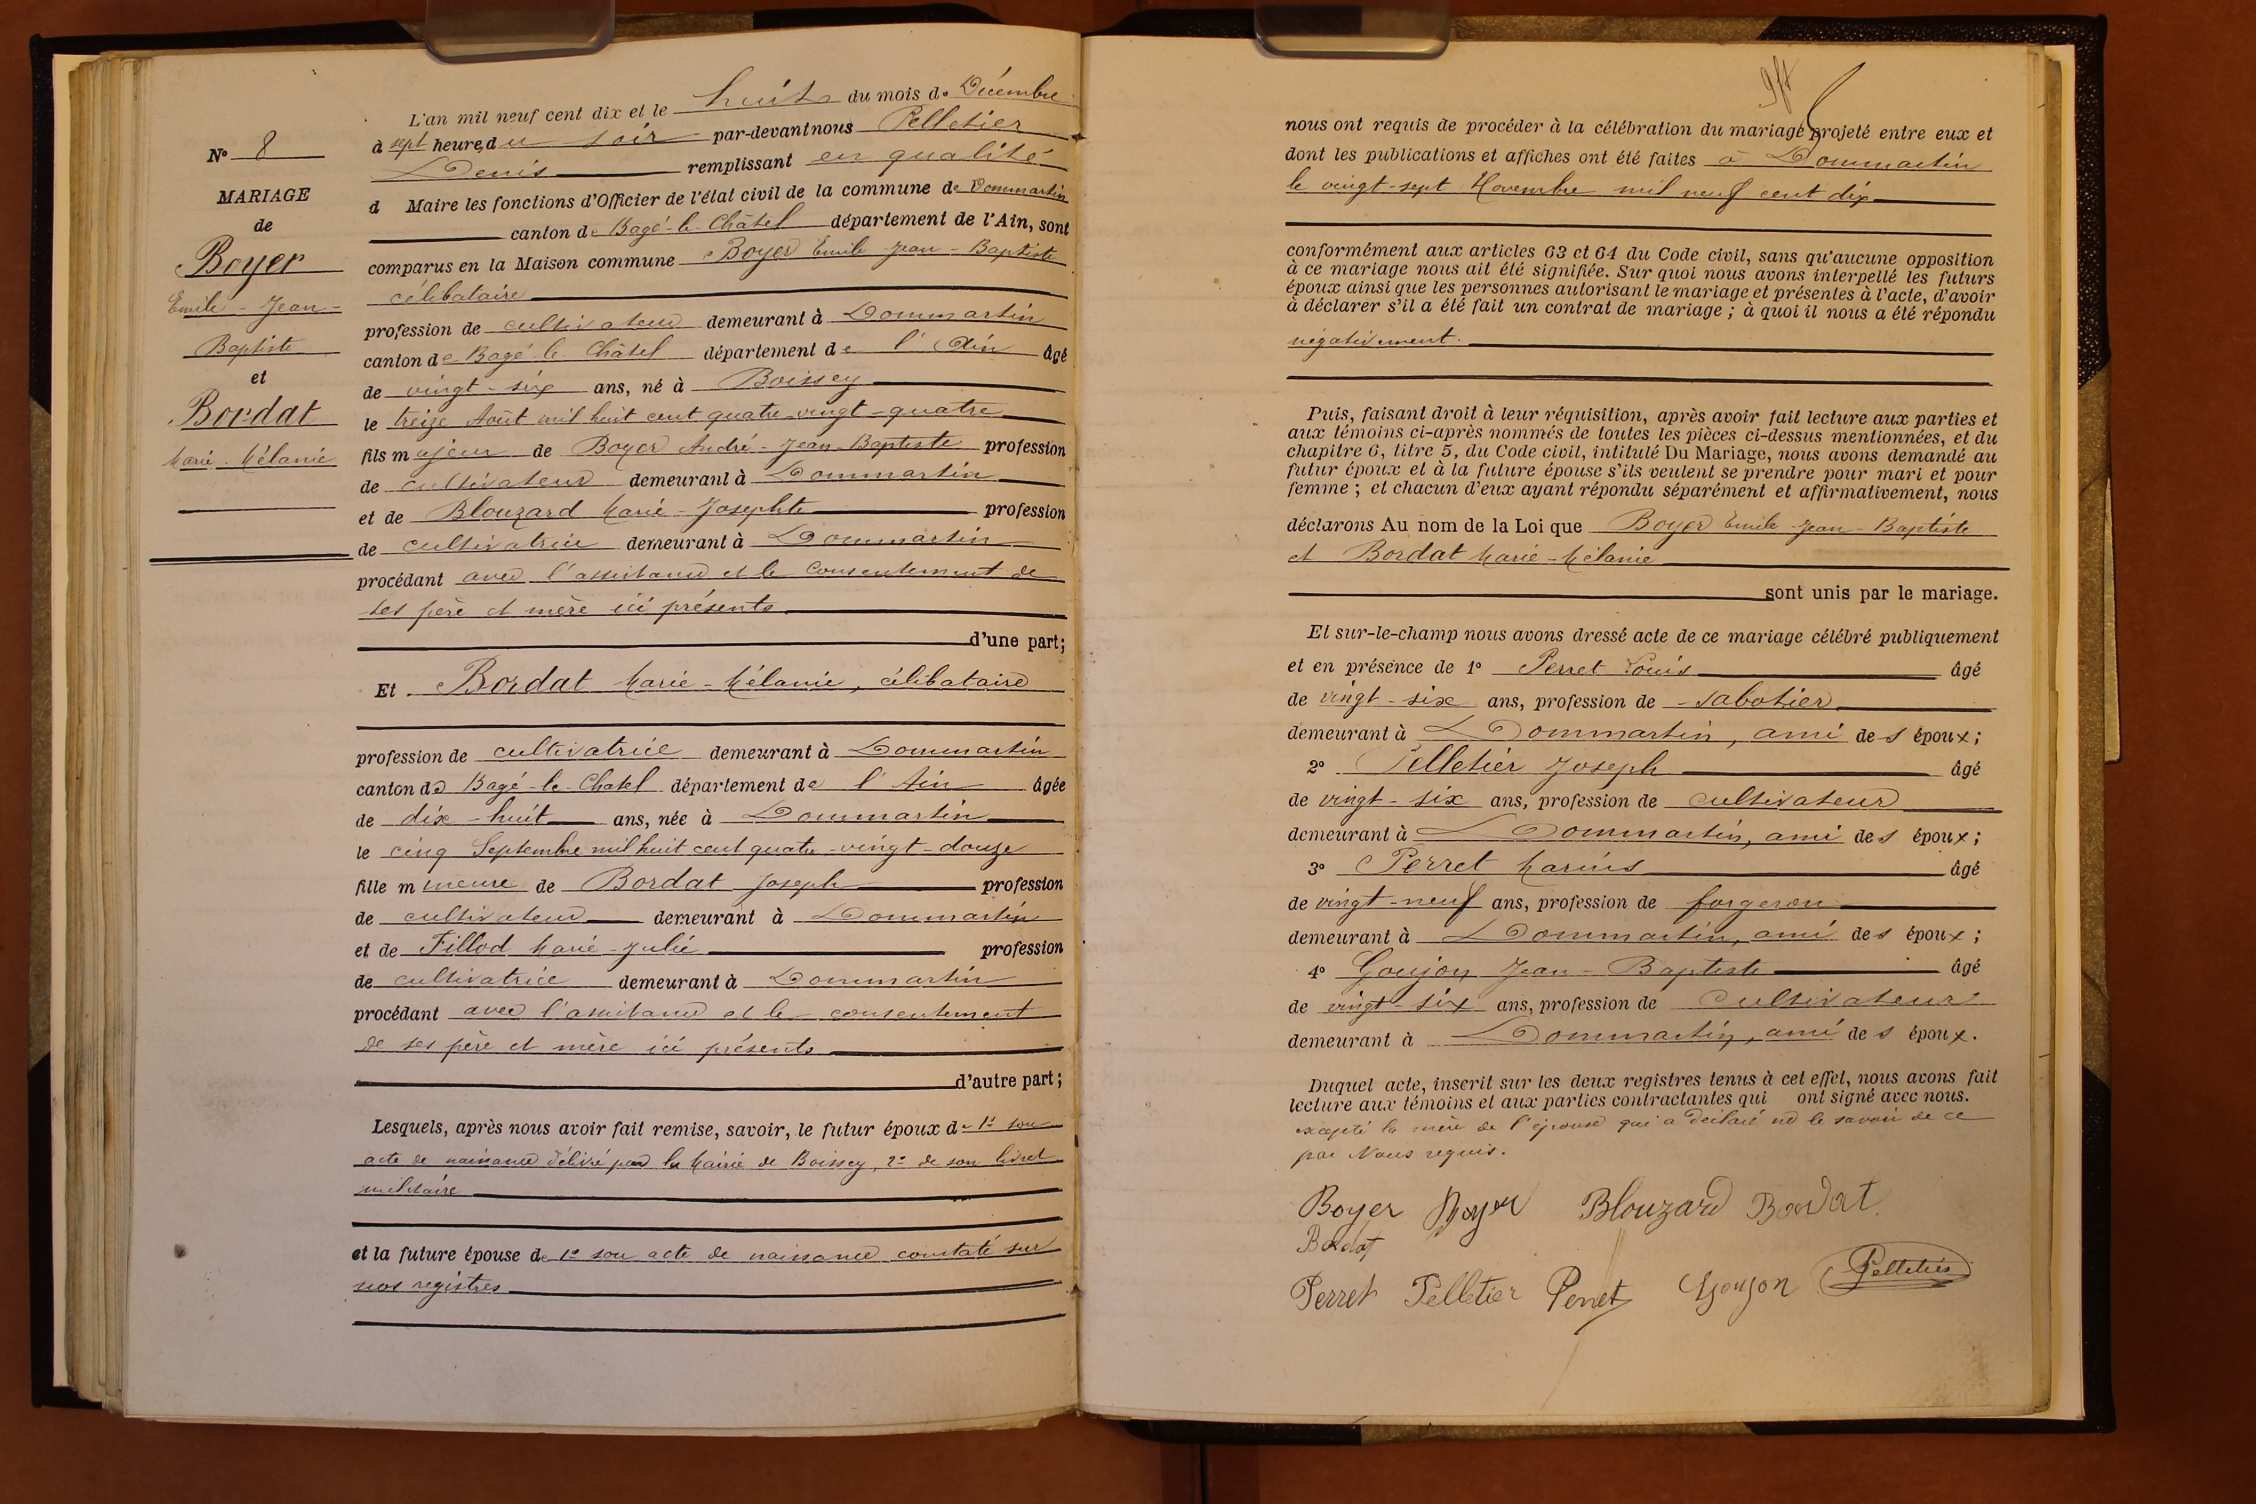 L'an mil neuf cent dix et le huit du mois de Décembre
à sept heure, du soir par-devant nous Pelletier
Denis remplissant en qualité
d Maire les fonctions d'Officier de l'état civil de la commune de Dommartin
canton de Bagé-le-Châtel département de l'Ain, sont
comparus en la Maison commune Boyer Emile Jean-Baptiste
célibataire
profession de cultivateur demeurant à Dommartin
canton de Bagé le Châtel département de l'Ain âgé
de vingt-six ans, né à Boissey
le treize Août mil huit cent quatre-vingt-quatre
fils majeur de Boyer André-Jean-Baptiste profession
de cultivateur demeurant à Dommartin
et de Blouzard Marie-Josephte profession
de cultivatrice demeurant à Dommartin
procédant avec l'assistance et le consentement de
ses père et mère ici présents
d'une part;
Et Bordat Marie-Mélanie, célibataire
profession de cultivatrice demeurant à Dommartin
canton de Bagé-le-Chatel département de l'Ain âgée
de dix-huit ans, née à Dommartin
le cinq Septembre mil huit cent quatre-vingt-douze
fille mineure de Bordat Joseph profession
de cultivateur demeurant à Dommartin
et de Fillod Marie-Julie profession
de cultivatrice demeurant à Dommartin
procédant avec l'assistance et le consentement
de ses père et mère ici présents
d'autre part;
Lesquels, après nous avoir fait remise, savoir, le futur époux de 1° son
acte de naissance délivré par la Mairie de Boissey, 2° de son livret
militaire
et la future épouse de 1° son acte de naissance constaté sur
nos registres
N° 8
MARIAGE
de
Boyer
Emile-Jean-
Baptiste
et
Bordat
Marie-Mélanie
nous ont requis de procéder à la célébration du mariage projeté entre eux et
dont les publications et affiches ont été faites à Dommartin
le vingt-sept Novembre mil neuf cent dix
conformément aux articles 63 et 64 du Code civil, sans qu'aucune opposition
à ce mariage nous ait été signifiée. Sur quoi nous avons interpellé les futurs
époux ainsi que les personnes autorisant le mariage et présentes à l'acte, d'avoir
à déclarer s'il a été fait un contrat de mariage; à quoi il nous a été répondu
négativement.
Puis, faisant droit à leur réquisition, après avoir fait lecture aux parties et
aux témoins ci-après nommés de toutes les pièces ci-dessus mentionnées, et du
chapitre 6, titre 5, du Code civil, intitulé Du Mariage, nous avons demandé au
futur époux et à la future épouse s'ils veulent se prendre pour mari et pour
femme; et chacun d'eux ayant répondu séparément et affirmativement, nous
déclarons Au nom de la Loi que Boyer Emile-Jean-Baptiste
et Bordat Marie-Mélanie
sont unis par le mariage.
Et sur-le-champ nous avons dressé acte de ce mariage célébré publiquement
et en présence de 1° Perret Louis âgé
de vingt-six ans, profession de sabotier
demeurant à Dommartin, ami des époux;
2° Pelletier Joseph âgé
de vingt-six ans, profession de cultivateur
demeurant à Dommartin, ami des époux;
3° Perret Marius âgé
de vingt-neuf ans, profession de forgeron
demeurant à Dommartin, ami des époux;
4° Goujon Jean-Baptiste âgé
de vingt-six ans, profession de cultivateur
demeurant à Dommartin, ami des époux.
Duquel acte, inscrit sur les deux registres tenus à cet effet, nous avons fait
lecture aux témoins et aux parties contractantes qui ont signé avec nous.
excepté la mère de l'épouse qui a déclaré ne le savoir de ce
par Nous requis.
Boyer Boyer Blouzard Bordat
Bordat
Perret Pelletier Perret Goujon Pelletier